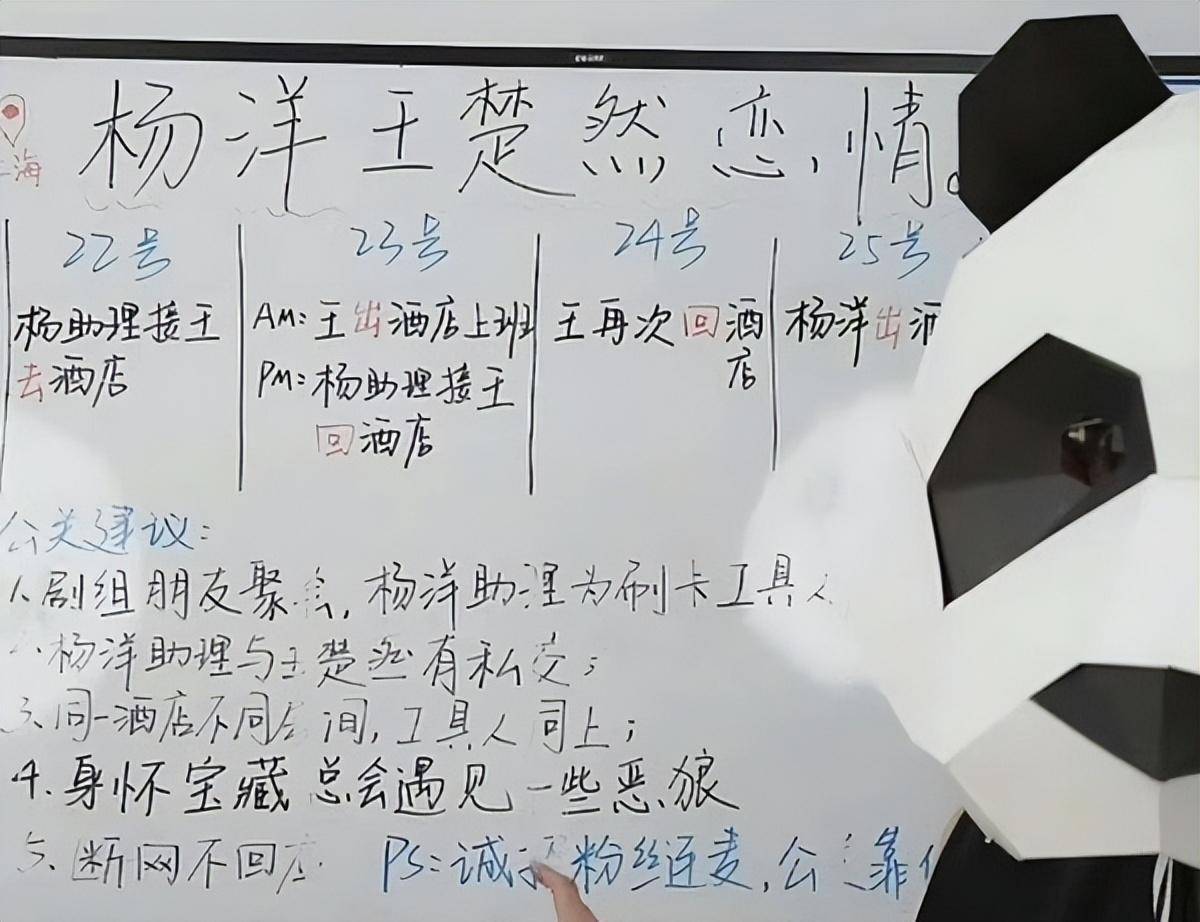 海
杨洋王楚然恋情。
22号
杨助理接王
去酒店
23号
AM:王出酒店上班
PM:杨助理接王
回酒店
24号
王再次回酒
店
25号
杨洋出酒
公关建议:
1、剧组朋友聚会,杨洋助理为刷卡工具人
杨洋助理与王楚然有私交;
3、同一酒店不同房间,工具人同上;
4.身怀宝藏总会遇见一些恶狼
5、断网不回应
PS:诚求粉丝连麦,公关靠